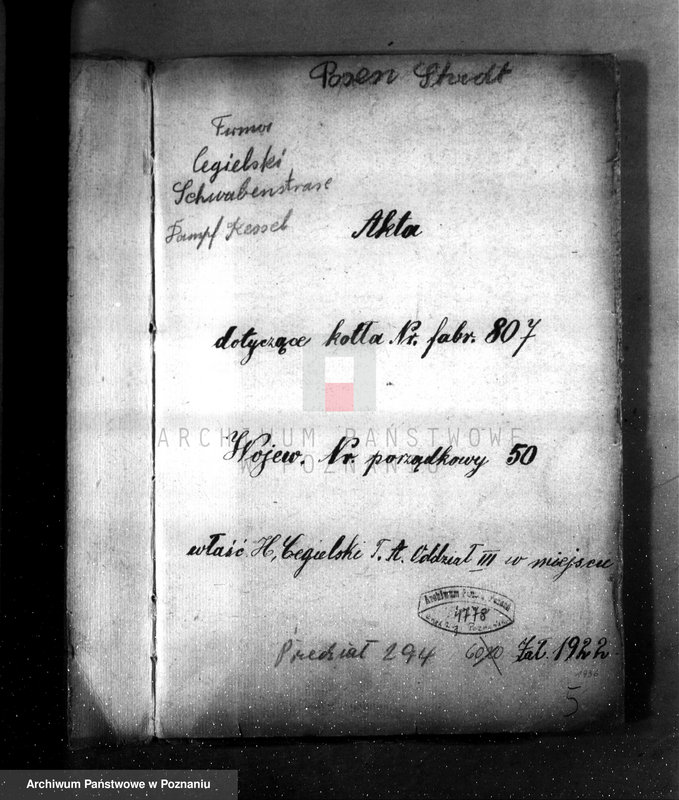 Posen Stadt
Firma
Cegielski
Schwabenstrase
Dampf Kessel
Akta
dotyczące kotła Nr. fabr. 807
ARCHIWUM PAŃSTWOWE
W POZNANIU
Wojew. Nr. porządkowy 50
właść H. Cegielski T. A. Oddział III w miejscu
Archiwum Państw. Poznań
1778
Przedział 294 Zał. 1922
1936
5
Archiwum Państwowe w Poznaniu